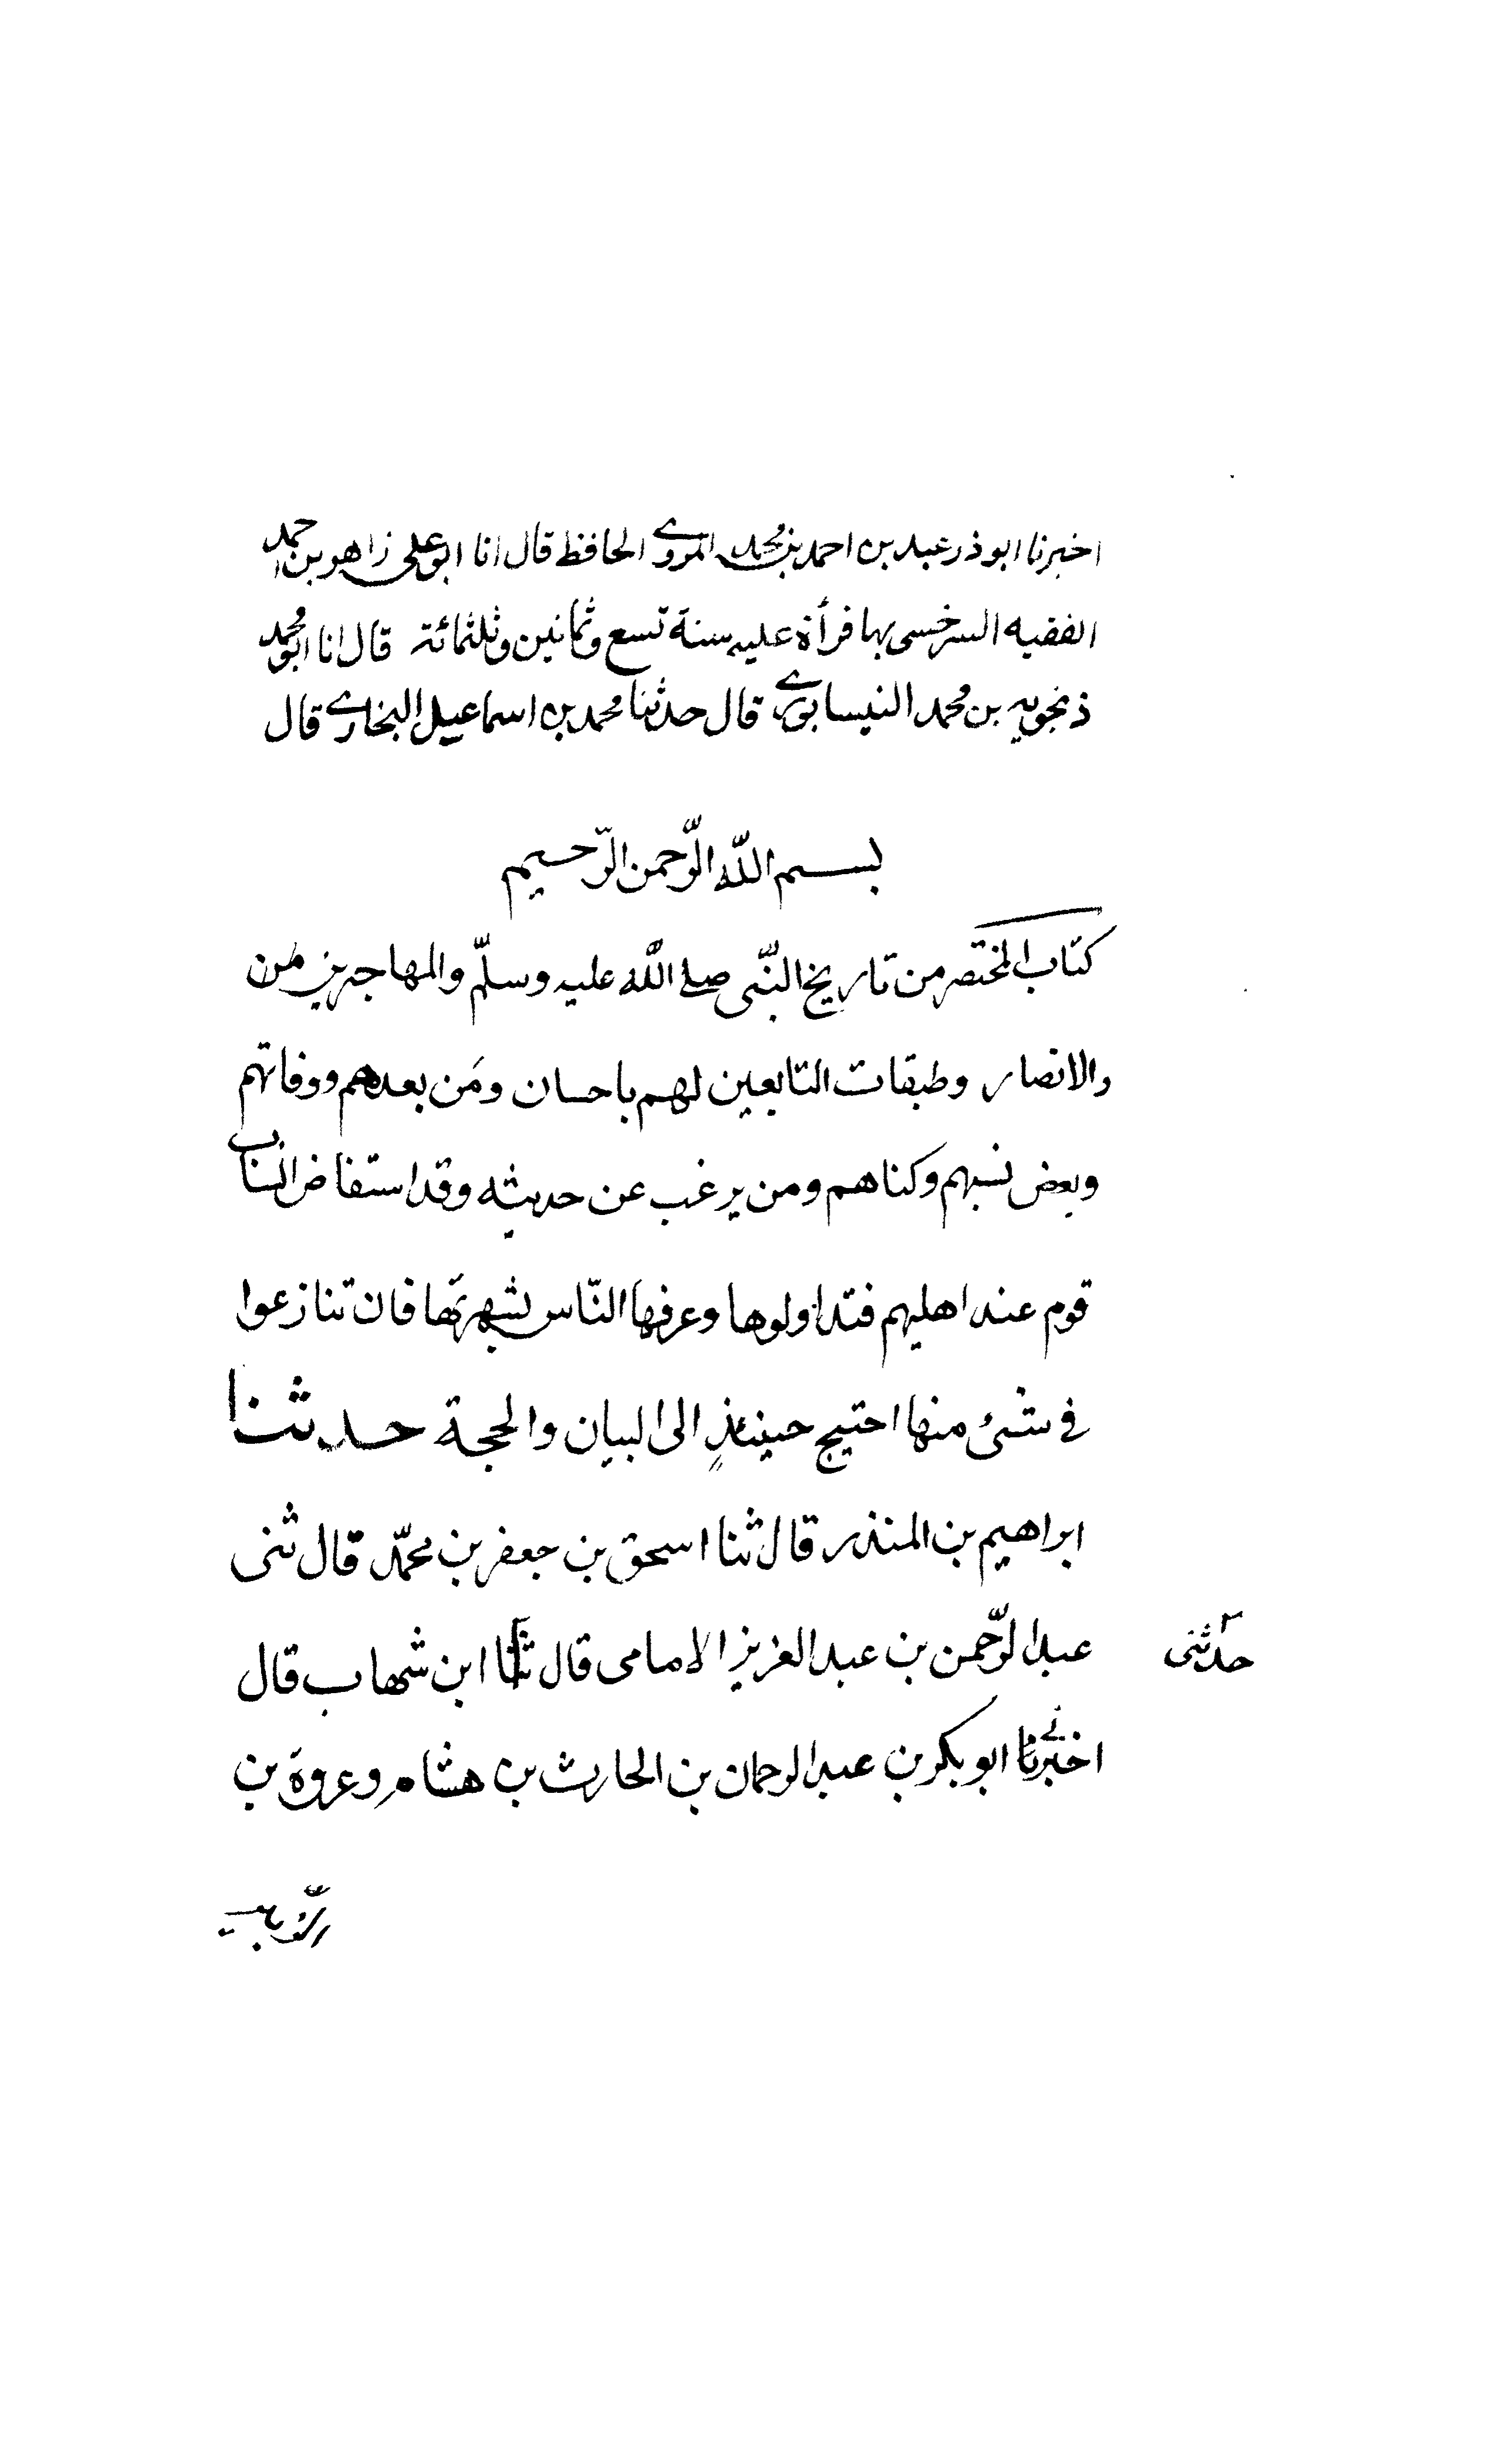 اخبرنا ابو ذر عبد بن احمد بن محمد المروى الحافظ قال انا ابو على زاهر بن احمد
الفقيه السرخسى بها قرأة عليه سنة تسع وثمانين وثلثمائة قال انا ابو محمد
زنجويه بن محمد النيسابورى قال حدثنا محمد بن اسماعيل البخارى قال
بسم الله الرّحمن الرّحيم
كتاب المختصر من تاريخ النّبى صلى اللّه عليه وسلّم والمهاجرين من
والانصار وطبقات التابعين لهم باحسان ومَن بعدهم ووفاتهم
وبعض نسبهم وكناهم ومن يرغب عن حديثه وقد استفاض انساب
قوم عند اهليهم فتداولوها وعرفها النّاس بشهرتها فان تنازعوا
فى شئ منها احتيج حينئذٍ الى البيان والحجة حدثنا
ابراهيم بن المنذر قال ثنا اسحق بن جعفر بن محمّد قال ثنى
عبد الرّحمن بن عبد العزيز الامامى قال ثنا ابن شهاب قال
حدثنى
اخبرنا ابو بكر بن عبد الرحمان بن الحارث بن هشام وعروة بن
الزّبير